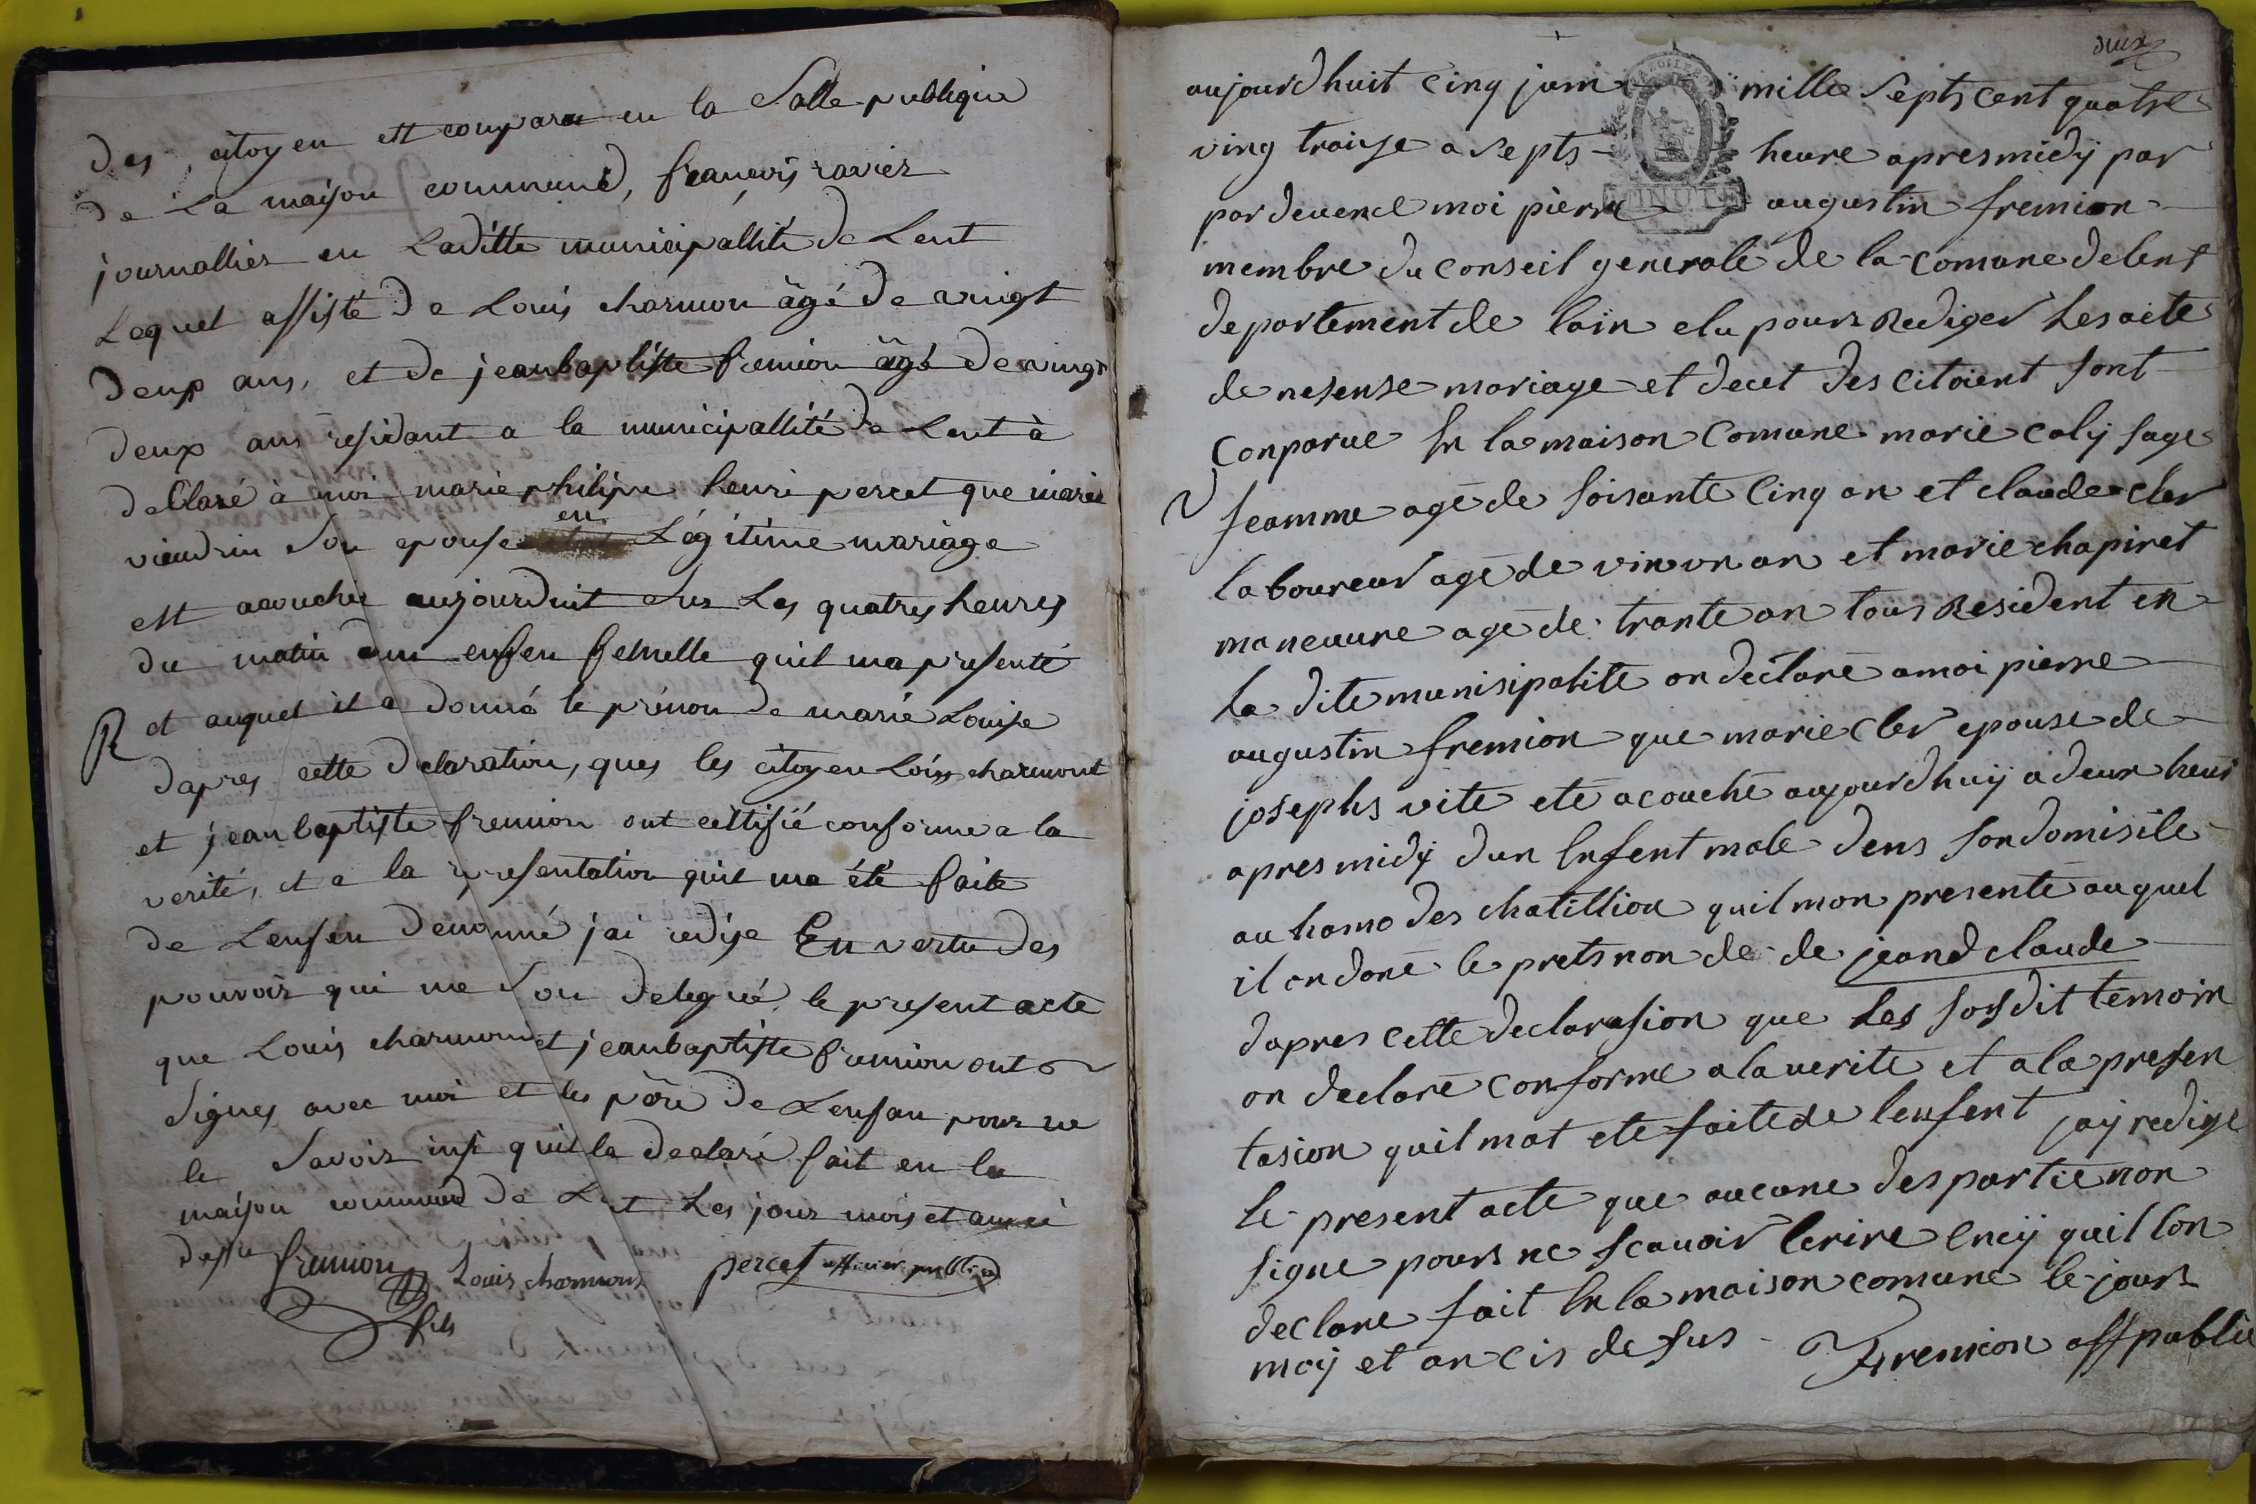 des citoyen est comparu en la Salle publique
de La maison commune, françois ravier
journallier en Laditte municipallité de Lent
Lequel assisté de Louis charmon âgé de vingt
deux ans, et de jeanbaptiste fremion âgé de vingt
deux ans residant a la municipallité de Lent à
declaré à moi marie philipe henri percet que marie
vieudrin son epouse en Légitime mariage
est acouchée aujourduit sur Les quatres heures
du matin dun enfen femelle quil ma presenté
R et auquel il a donné le prénon de marie Louise
dapres cette declaration, ques les citoyen Loiss charmont
et jeanbaptiste fremion ont certifié conforme a la
verité, et a la representation quil ma été faite
de Lenfen denonmé jai redige En vertu des
pouvoir qui me son delegué, le present acte
que Louis charmon et jeanbaptiste fremion ont
Signes avec moi et les père de Lenfan pour ne
le Savoir insi quil la declaré fait en la
maison commune de Lent Les jour mois et an ci
desu
fremion fils Louis charmon percet officier public
deux
aujourdhuit Cinq juin mille Septs cent quatre
MINUTE
ving traise a Septs heure apres midÿ par
par devence moi pierre augustin fremion
membre du Conseil generale de la Comune de lent
departement de lain elu pour Rediger Les acte
de nesense mariage et decet des Citoient Sont
Conparue En la maison Comune marie Colÿ sage
feamme age de soisante Cinq an et claude Cler
laboureur age de vin un an et marie chapiret
maneuvre age de trante an tous Resident en
la dite munisipalite on declare a moi pierre
augustin fremion que marie Cler epouse de
josephs vite ete acouche aujourdhuÿ a deux heur
apres midÿ dun Enfent male dens son domisile
au hamo des chatillion quil mon presente auquel
il on done le pretsnon de de jeand claude
dapres Cette declarasion que Les susdit temoin
on declare Conforme a la verite et a la presen
tasion quil mat ete faite de lenfent jaÿ redige
le present acte que aucune des partie non
signe pour ne scavoir Ecrire Ensÿ quil lon
declare fait En la maison comune le jour
moÿ et an cis desus fremion off public